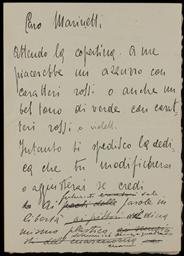 Caro Marinetti
attendo la copertina. a me
piacerebbe un azzurro con
caratteri rossi o anche un
bel tono di verde con carat
teri rossi o violetti.
Intanto ti spedisco la dedi
ca che tu modificherai
o aggiusterai se credi
futuristi
ai poeti delle parole in
libertà
mismo plastico